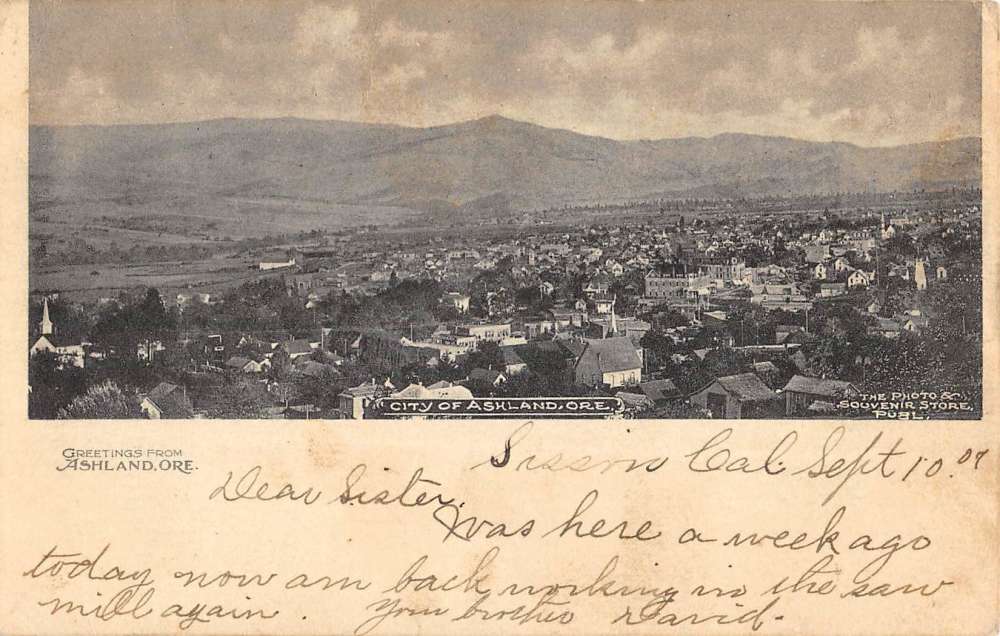 CITY OF ASHLAND, ORE.
THE PHOTO &
SOUVENIR STORE,
PUBL.
GREETINGS FROM
ASHLAND, ORE.
Sisson Cal. Sept 10. 07
Dear Sister,
Was here a week ago
today now am back working in the saw
mill again. Your brother David.